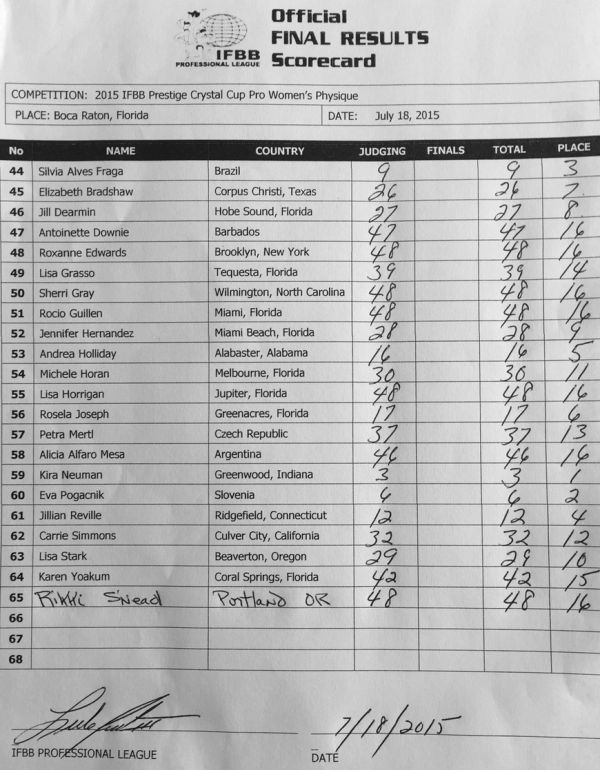 Official
FINAL RESULTS
Scorecard
IFBB
PROFESSIONAL LEAGUE
COMPETITION: 2015 IFBB Prestige Crystal Cup Pro Women's Physique
PLACE: Boca Raton, Florida DATE: July 18, 2015
No NAME COUNTRY JUDGING FINALS TOTAL PLACE
44 Silvia Alves Fraga Brazil 9 9 3
45 Elizabeth Bradshaw Corpus Christi, Texas 26 26 7
46 Jill Dearmin Hobe Sound, Florida 27 27 8
47 Antoinette Downie Barbados 47 47 16
48 Roxanne Edwards Brooklyn, New York 48 48 16
49 Lisa Grasso Tequesta, Florida 39 39 14
50 Sherri Gray Wilmington, North Carolina 48 48 16
51 Rocio Guillen Miami, Florida 48 48 16
52 Jennifer Hernandez Miami Beach, Florida 28 28 9
53 Andrea Holliday Alabaster, Alabama 16 16 5
54 Michele Horan Melbourne, Florida 30 30 11
55 Lisa Horrigan Jupiter, Florida 48 48 16
56 Rosela Joseph Greenacres, Florida 17 17 6
57 Petra Mertl Czech Republic 37 37 13
58 Alicia Alfaro Mesa Argentina 46 46 16
59 Kira Neuman Greenwood, Indiana 3 3 1
60 Eva Pogacnik Slovenia 6 6 2
61 Jillian Reville Ridgefield, Connecticut 12 12 4
62 Carrie Simmons Culver City, California 32 32 12
63 Lisa Stark Beaverton, Oregon 29 29 10
64 Karen Yoakum Coral Springs, Florida 42 42 15
65 Rikki S'nead Portland OR 48 48 16
66
67
68
7/18/2015
IFBB PROFESSIONAL LEAGUE DATE